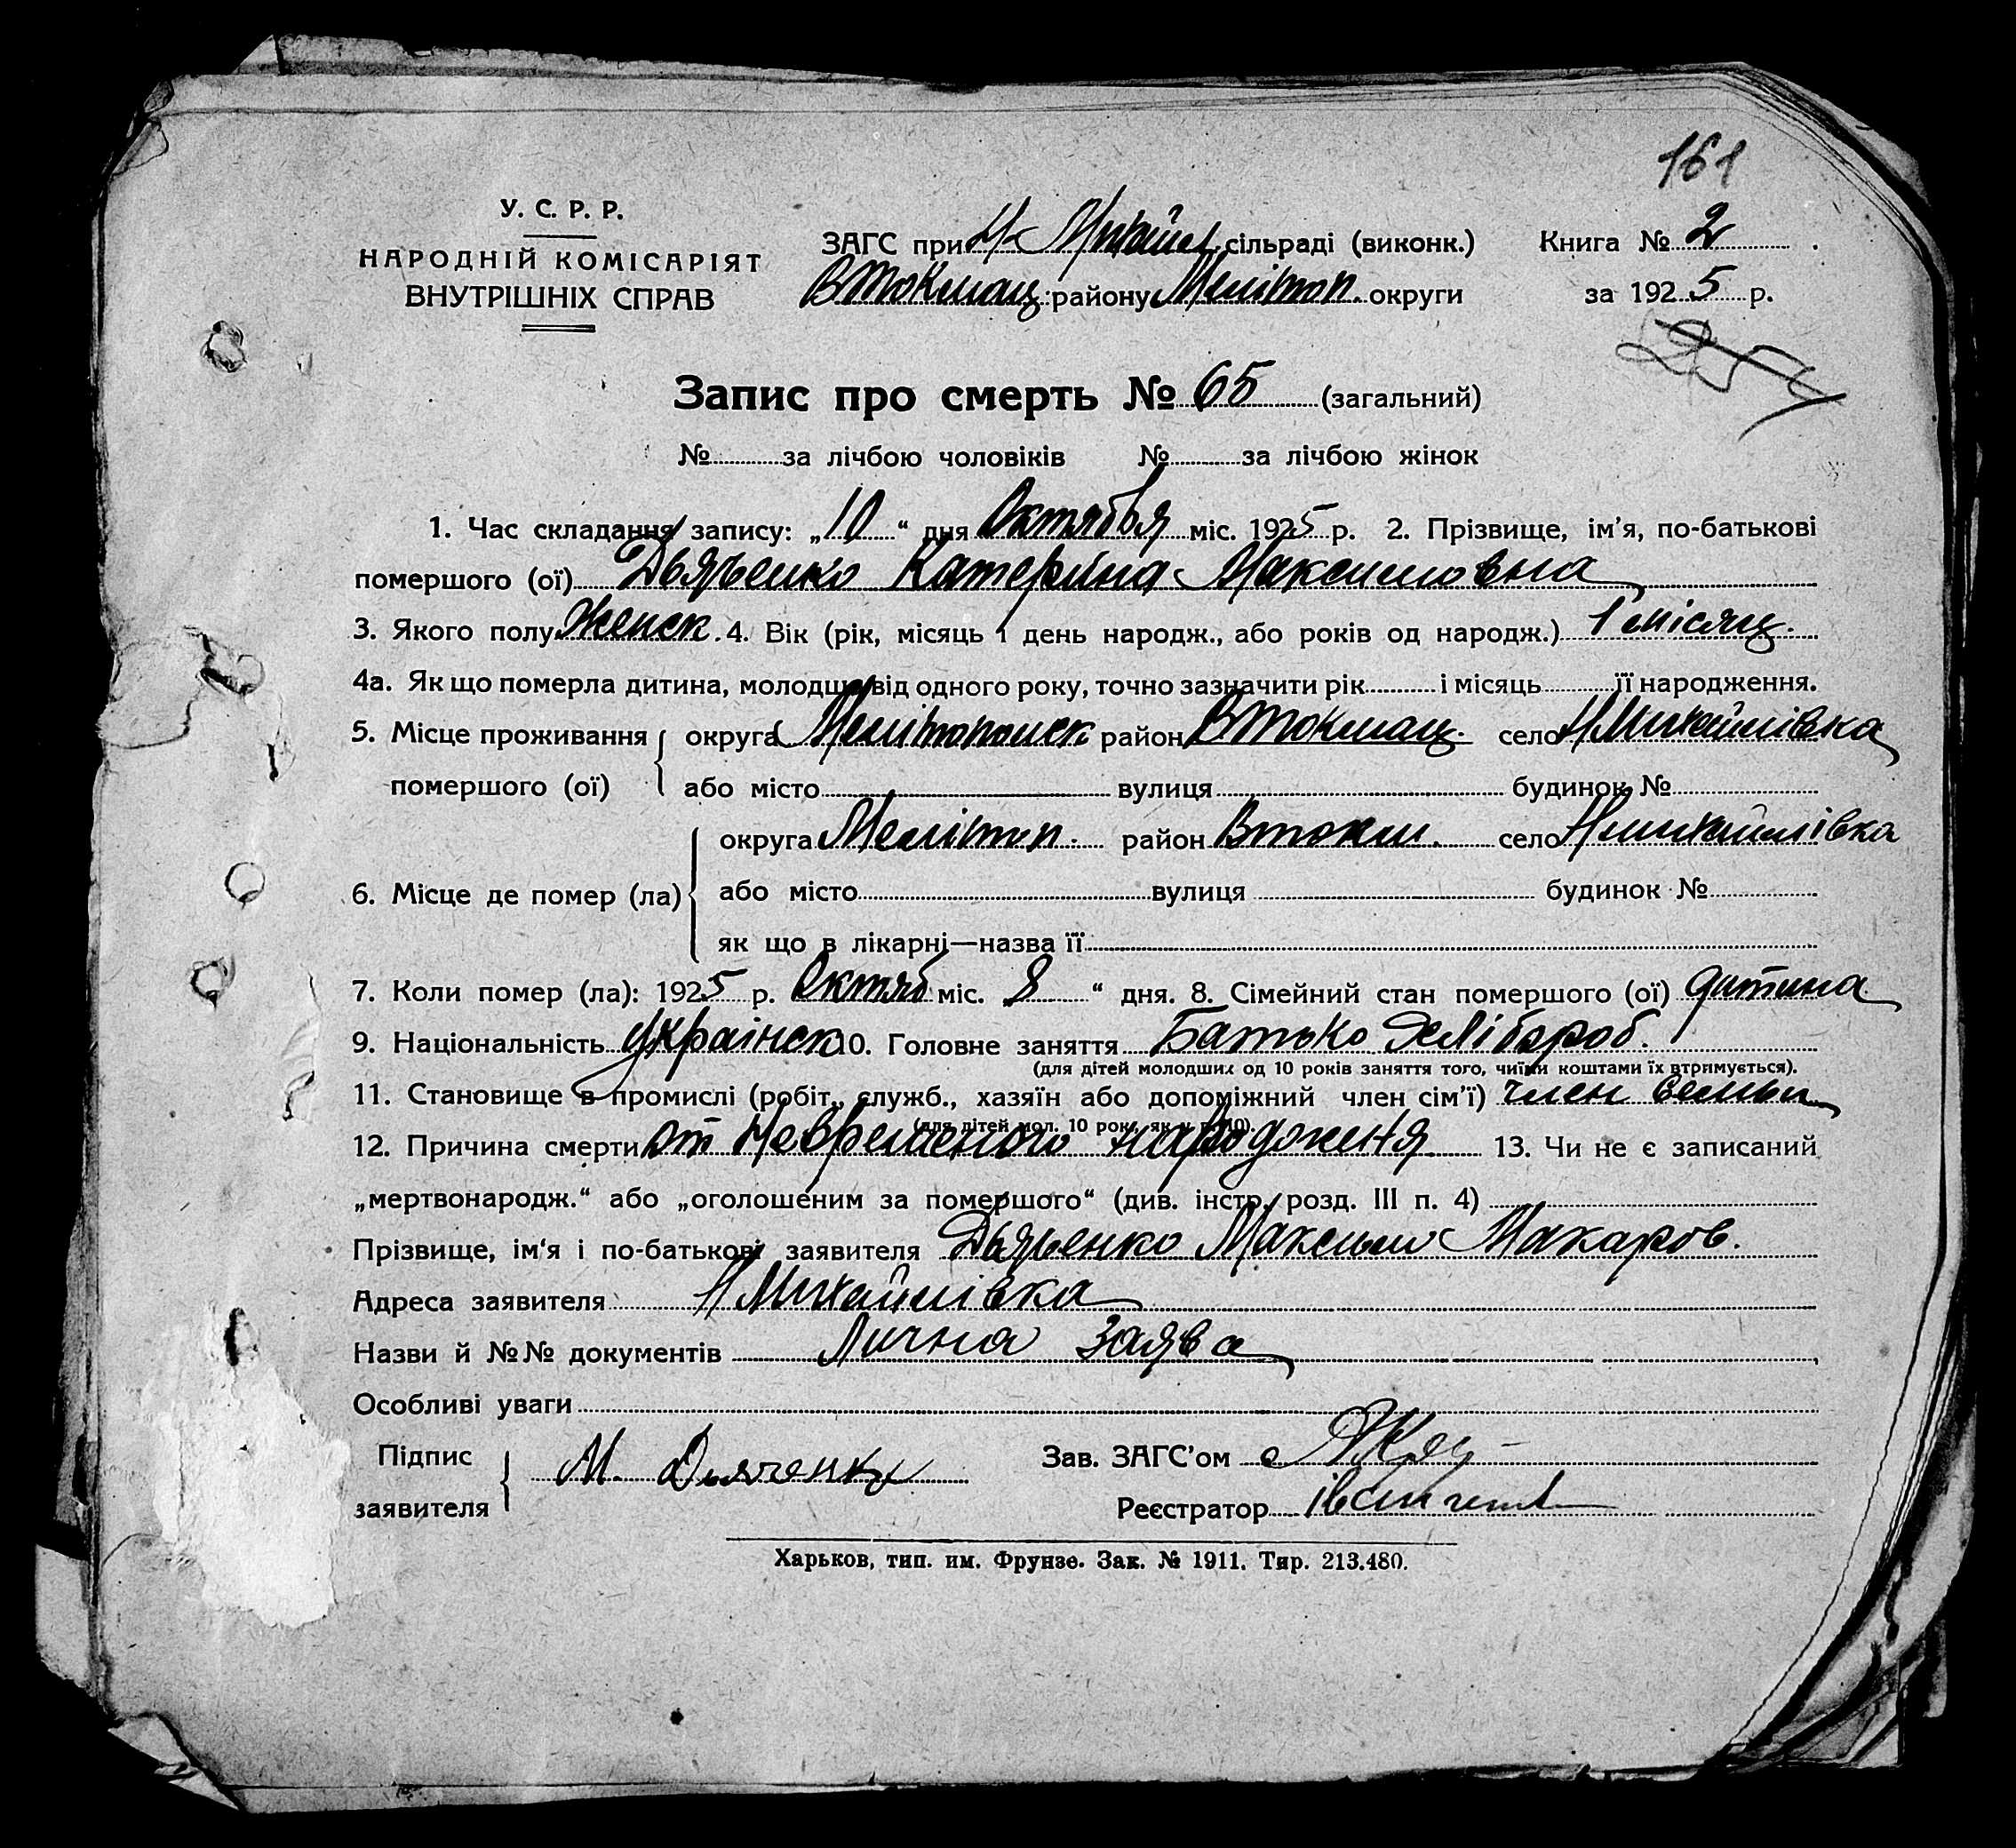 161
У. С. Р. Р.
НАРОДНІЙ КОМІСАРІЯТ
ВНУТРІШНІХ СПРАВ
ЗАГС при Н-Михайл. сільраді (виконк.)
ВТокмац. району Мелітоп. округи
Книга № 2
за 1925 р.
Запис про смерть № 65 (загальний)
№ за лічбою чоловіків № за лічбою жінок
1. Час складання запису: „10“ дня Октября міс. 1925 р. 2. Прізвище, ім'я, по-батькові
помершого (ої) Дьяченко Катерина Максимовна
3. Якого полу Женск. 4. Вік (рік, місяць і день народж., або років од народж.) 1 місяц.
4а. Як що померла дитина, молодша від одного року, точно зазначити рік і місяць її народження.
5. Місце проживання помершого (ої) округа Мелітопольск район ВТокмац. село НМихайлівка
або місто вулиця будинок №
6. Місце де помер (ла) округа Мелітоп. район Втокм. село Нмихайлівка
або місто вулиця будинок №
як що в лікарні—назва її
7. Коли помер (ла): 1925 р. Октяб міс. 8 “ дня. 8. Сімейний стан помершого (ої) дитина
9. Національність Українск 10. Головне заняття Батько Хлібороб.
(для дітей молодших од 10 років заняття того, чиїми коштами їх втримується).
11. Становище в промислі (робіт., служб., хазяїн або допоміжний член сім'ї) член семьи
(для дітей мол. 10 рок. як у п. 10).
12. Причина смерти от Невременого народженя 13. Чи не є записаний
„мертвонародж.“ або „оголошеним за помершого“ (див. інстр. розд. III п. 4)
Прізвище, ім'я і по-батькові заявителя Дьяченко Максим Макаров.
Адреса заявителя НМихайлівка
Назви й №№ документів Лична заява
Особливі уваги
Підпис заявителя М. Дьяченко
Зав. ЗАГС'ом
Реєстратор
Харьков, тип. им. Фрунзе. Зак. № 1911. Тир. 213.480.